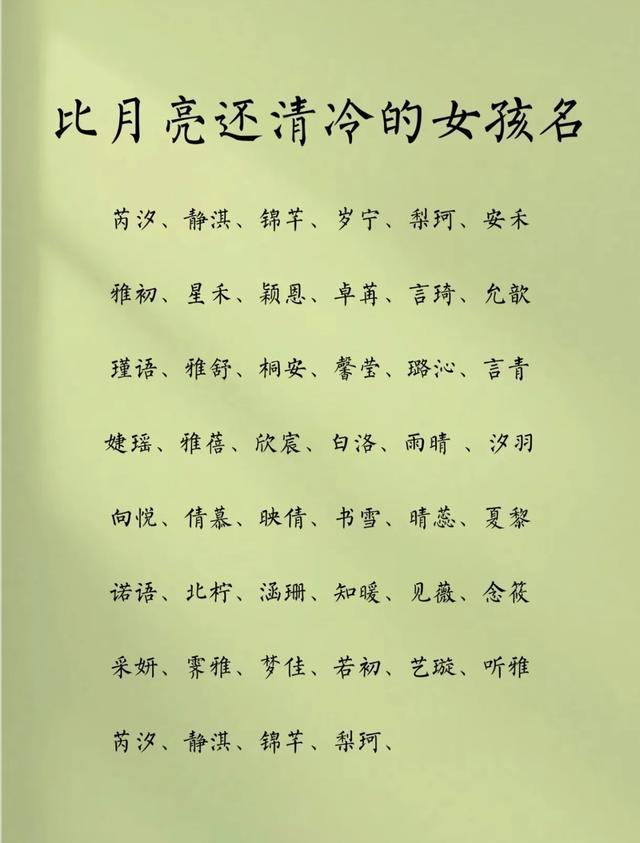 比月亮还清冷的女孩名
芮汐、静淇、锦芊、岁宁、梨珂、安禾
雅初、星禾、颖恩、卓苒、言琦、允歆
瑾语、雅舒、桐安、馨莹、璐沁、言青
婕瑶、雅蓓、欣宸、白洛、雨晴 、汐羽
向悦、倩慕、映倩、书雪、晴蕊、夏黎
诺语、北柠、涵珊、知暖、见薇、念筱
采妍、霁雅、梦佳、若初、艺璇、听雅
芮汐、静淇、锦芊、梨珂、